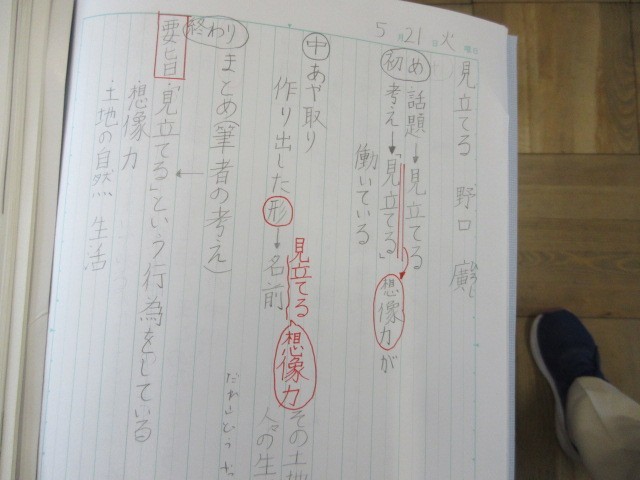 5月21日火曜日
見立てる 野口 廣
ひろし
初め 話題→見立てる
考え→「見立てる」想像力が
働いている
中 あや取り
作り出した形→名前
見立てる 想像力
その土地
人々の生
終わり まとめ(筆者の考え)
要旨 「見立てる」という行為をしている
想像力
土地の自然 生活